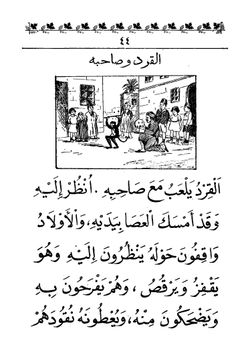 ٤٤
القرد وصاحبه
اَلْقِرْدُ يَلْعَبُ مَعَ صَاحِبِهِ . اُنْظُرْ إِلَيْهِ
وَقَدْ أَمْسَكَ الْعَصَا بِيَدَيْهِ، وَالْأَوْلَادُ
وَاقِفُونَ حَوْلَهُ يَنْظُرُونَ إِلَيْهِ وَهُوَ
يَقْفِزُ وَيَرْقُصُ ، وَهُمْ يَفْرَحُونَ بِهِ
وَيَضْحَكُونَ مِنْهُ، وَيُعْطُونَهُ نُقُودَهُمْ